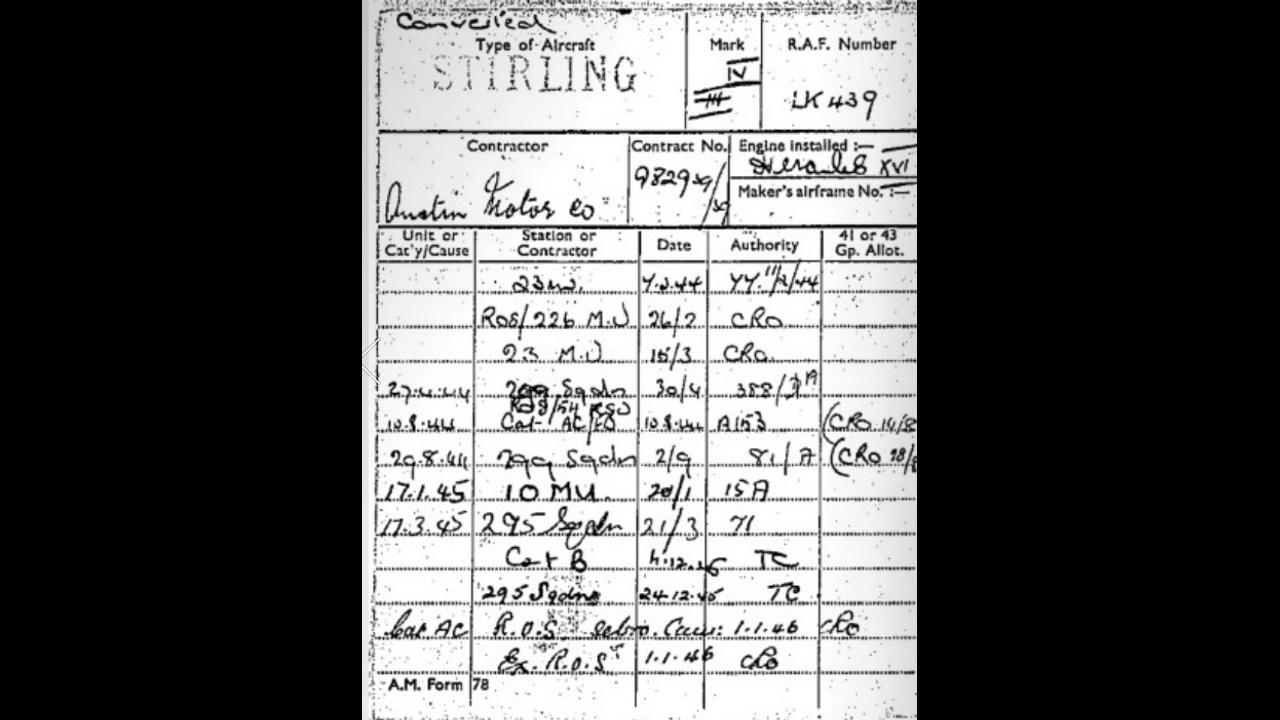 Converted
Type of Aircraft Mark R.A.F. Number
STIRLING IV
III LK 439
Contractor Contract No. Engine installed :—
Hercules XVI
9829 Maker's airframe No. :—
Austin Motor Co
Unit or Station or Date Authority 41 or 43
Cat'y/Cause Contractor Gp. Allot.
23 7.2.44 YY. 11/2/44
ROS/226 M.U 26/2 CRO
23 M.U 15/3 CRO
27.4.44 299 Sqdn 30/4 388/
ROS/54 RSU
10.8.44 Cat AC/FO 10.8.44 A153 (CRO 14/8
29.8.44 299 Sqdn 2/9 81/A (CRO 18/
17.1.45 10 MU 20/1 15A
17.3.45 295 Sqdn 21/3 71
Cat B 4.12. TC
295 Sqdn 24.12.45 TC
Cat AC R.O.S. 1.1.46 CRO
Ex. R.O.S 1.1.46 CRO
A.M. Form 78